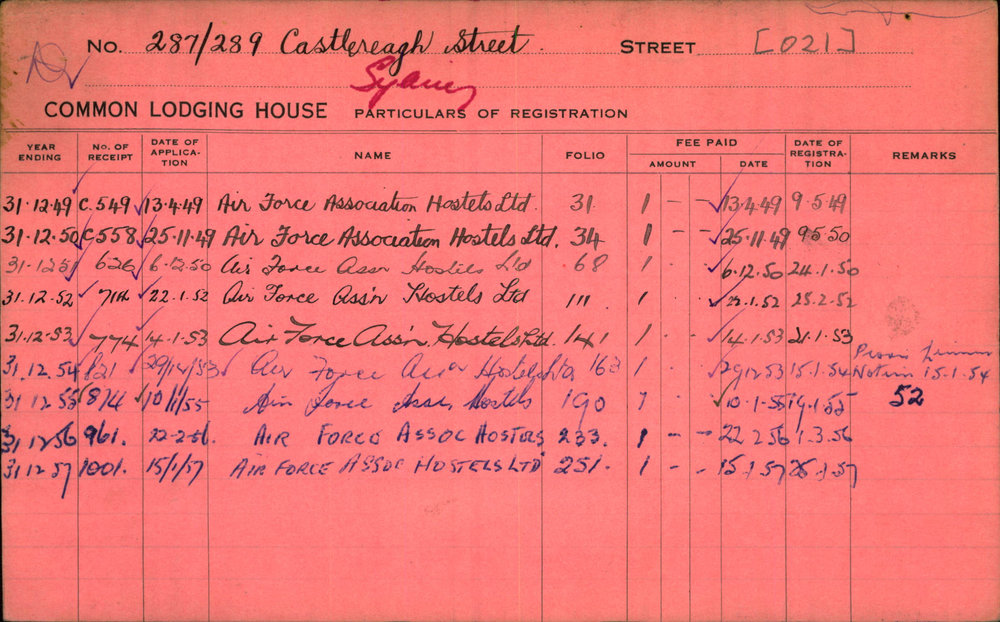 No. 287/289 Castlereagh Street. STREET [021]
Sydney
COMMON LODGING HOUSE PARTICULARS OF REGISTRATION
YEAR ENDING No. OF RECEIPT DATE OF APPLICATION NAME FOLIO FEE PAID AMOUNT DATE DATE OF REGISTRATION REMARKS
31.12.49 C.549 13.4.49 Air Force Association Hostels Ltd. 31 1 - - 13.4.49 9.5.49
31.12.50 C.558 25.11.49 Air Force Association Hostels Ltd. 34 1 - - 25.11.49 9.5.50
31.12.51 626 6.12.50 Air Force Assn Hostels Ltd 68 1 - 6.12.50 24.1.50
31.12.52 22.1.52 Air Force Ass'n Hostels Ltd 111 1 - 22.1.52 25.2.52
31.12.53 774 14.1.53 Air Force Ass'n. Hostels Ltd. 141 1 - - 14.1.53 21.1.53
31.12.54 821 29/12/53 Air Force Assn Hostels Ltd 163 1 - - 29.12.53 15.1.54 Notice 15.1.54
31.12.55 874 10/1/55 Air Force Assn. Hostels 190 1 - - 10.1.55 19.1.55 52
31.12.56 961. 22.2.56. AIR FORCE ASSOC HOSTELS 233. 1 - - 22 2 56 1.3.56
31.12.57 1001. 15/1/57 AIR FORCE ASSOC HOSTELS LTD 251. 1 - - 15.1.57 25.1.57